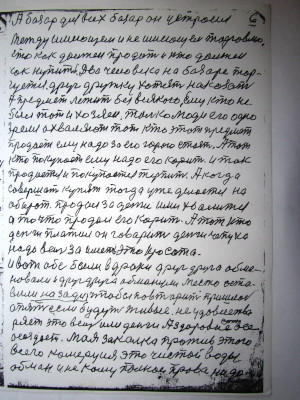 А базар для всех базар он устроен
между имеющем и не имеющем торговлю,
это как должен продать и кто должен
как купить. Два человека на базаре тор-
гуется, друг дружку хотят наказать
А предмет лежит без всякого, ему кто не
был тот и хозяин, только люди его одно
время охваляют тот кто этот предмет
продает ему надо за его горою стоять. А тот
кто покупает ему надо его корить и так
продается и покупается терпить. А когда
совершат куплю тогда уже делается на
оборот. продал за деньги ими хвалится
а то что продал его корит. А тот кто
деньги платил он говорит деньги
надо вещ за место это красота.
И вот обе были в драки друг друга обме-
новали и друг друга обманули. Место оста-
вили на заду, чтобы повтарить пришлось
опять если будут живые. не удовчества
ряет это вещ или деньги А здоровие все
осаждает. Мая закалка против этого
всего комерция, это чистой воды
обман и не кому такое права надо